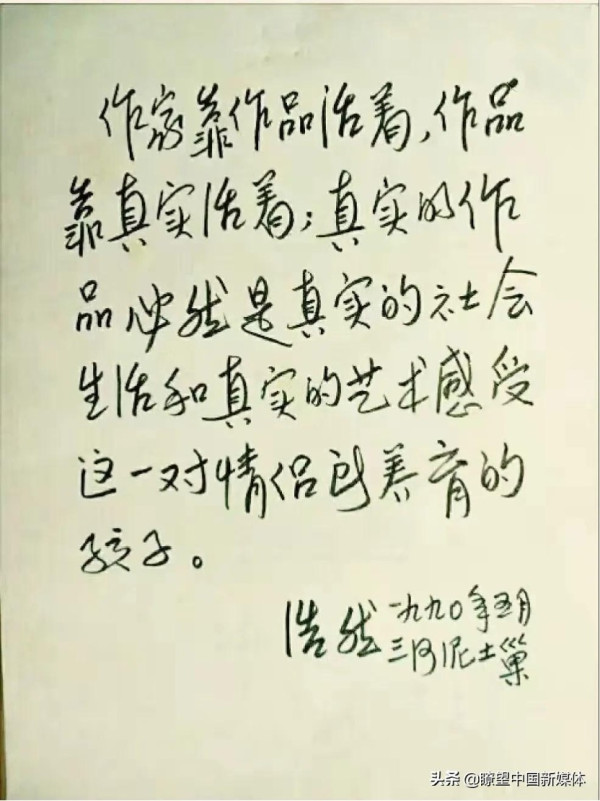 作家靠作品活着，作品
靠真实活着；真实的作
品必然是真实的社会
生活和真实的艺术感受
这一对情侣所养育的
孩子。
浩然 一九九〇年五月
三河泥土巢
头条 @瞭望中国新媒体